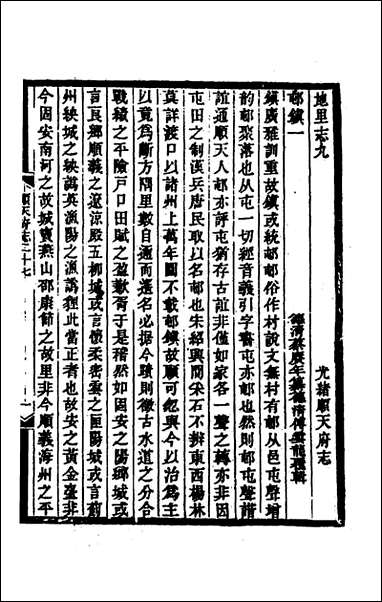 地理志九　光緒順天府志
邨鎮一　德清蔡賡年纂德清傅雲龍覆輯
鎮廣雅訓重故鎮或統邨邨俗作村說文無村有邨从邑屯聲增
韵邨聚落也从屯一切經音義引字書屯亦邨也然則邨屯聲諧
誼通順天人邨亦評屯猶存古誼非僅如家各一聲之轉亦非因
屯田之制漢兵唐民取以名邨也朱紹興閒宋石不辨東西楊林
莫詳渡口以諸州上萬年圖不載邨鎮故顧可忽與今以治為主
以竟為斷方隅里數自邇而遠名必据今蹟則徵古水道之分合
戰績之平險戶口田賦之盈歉胥于是稽然如固安之陽鄉城或
言良鄉順義之遼涼殿五柳城或言懷柔密雲之匡陽城或言薊
州秧城之秧譌英漁陽之漁譌程此當正者也故安之黃金臺非
今固安南河之故城竇燕山邵康節之故里非今順義海州之平
順天府志二十七